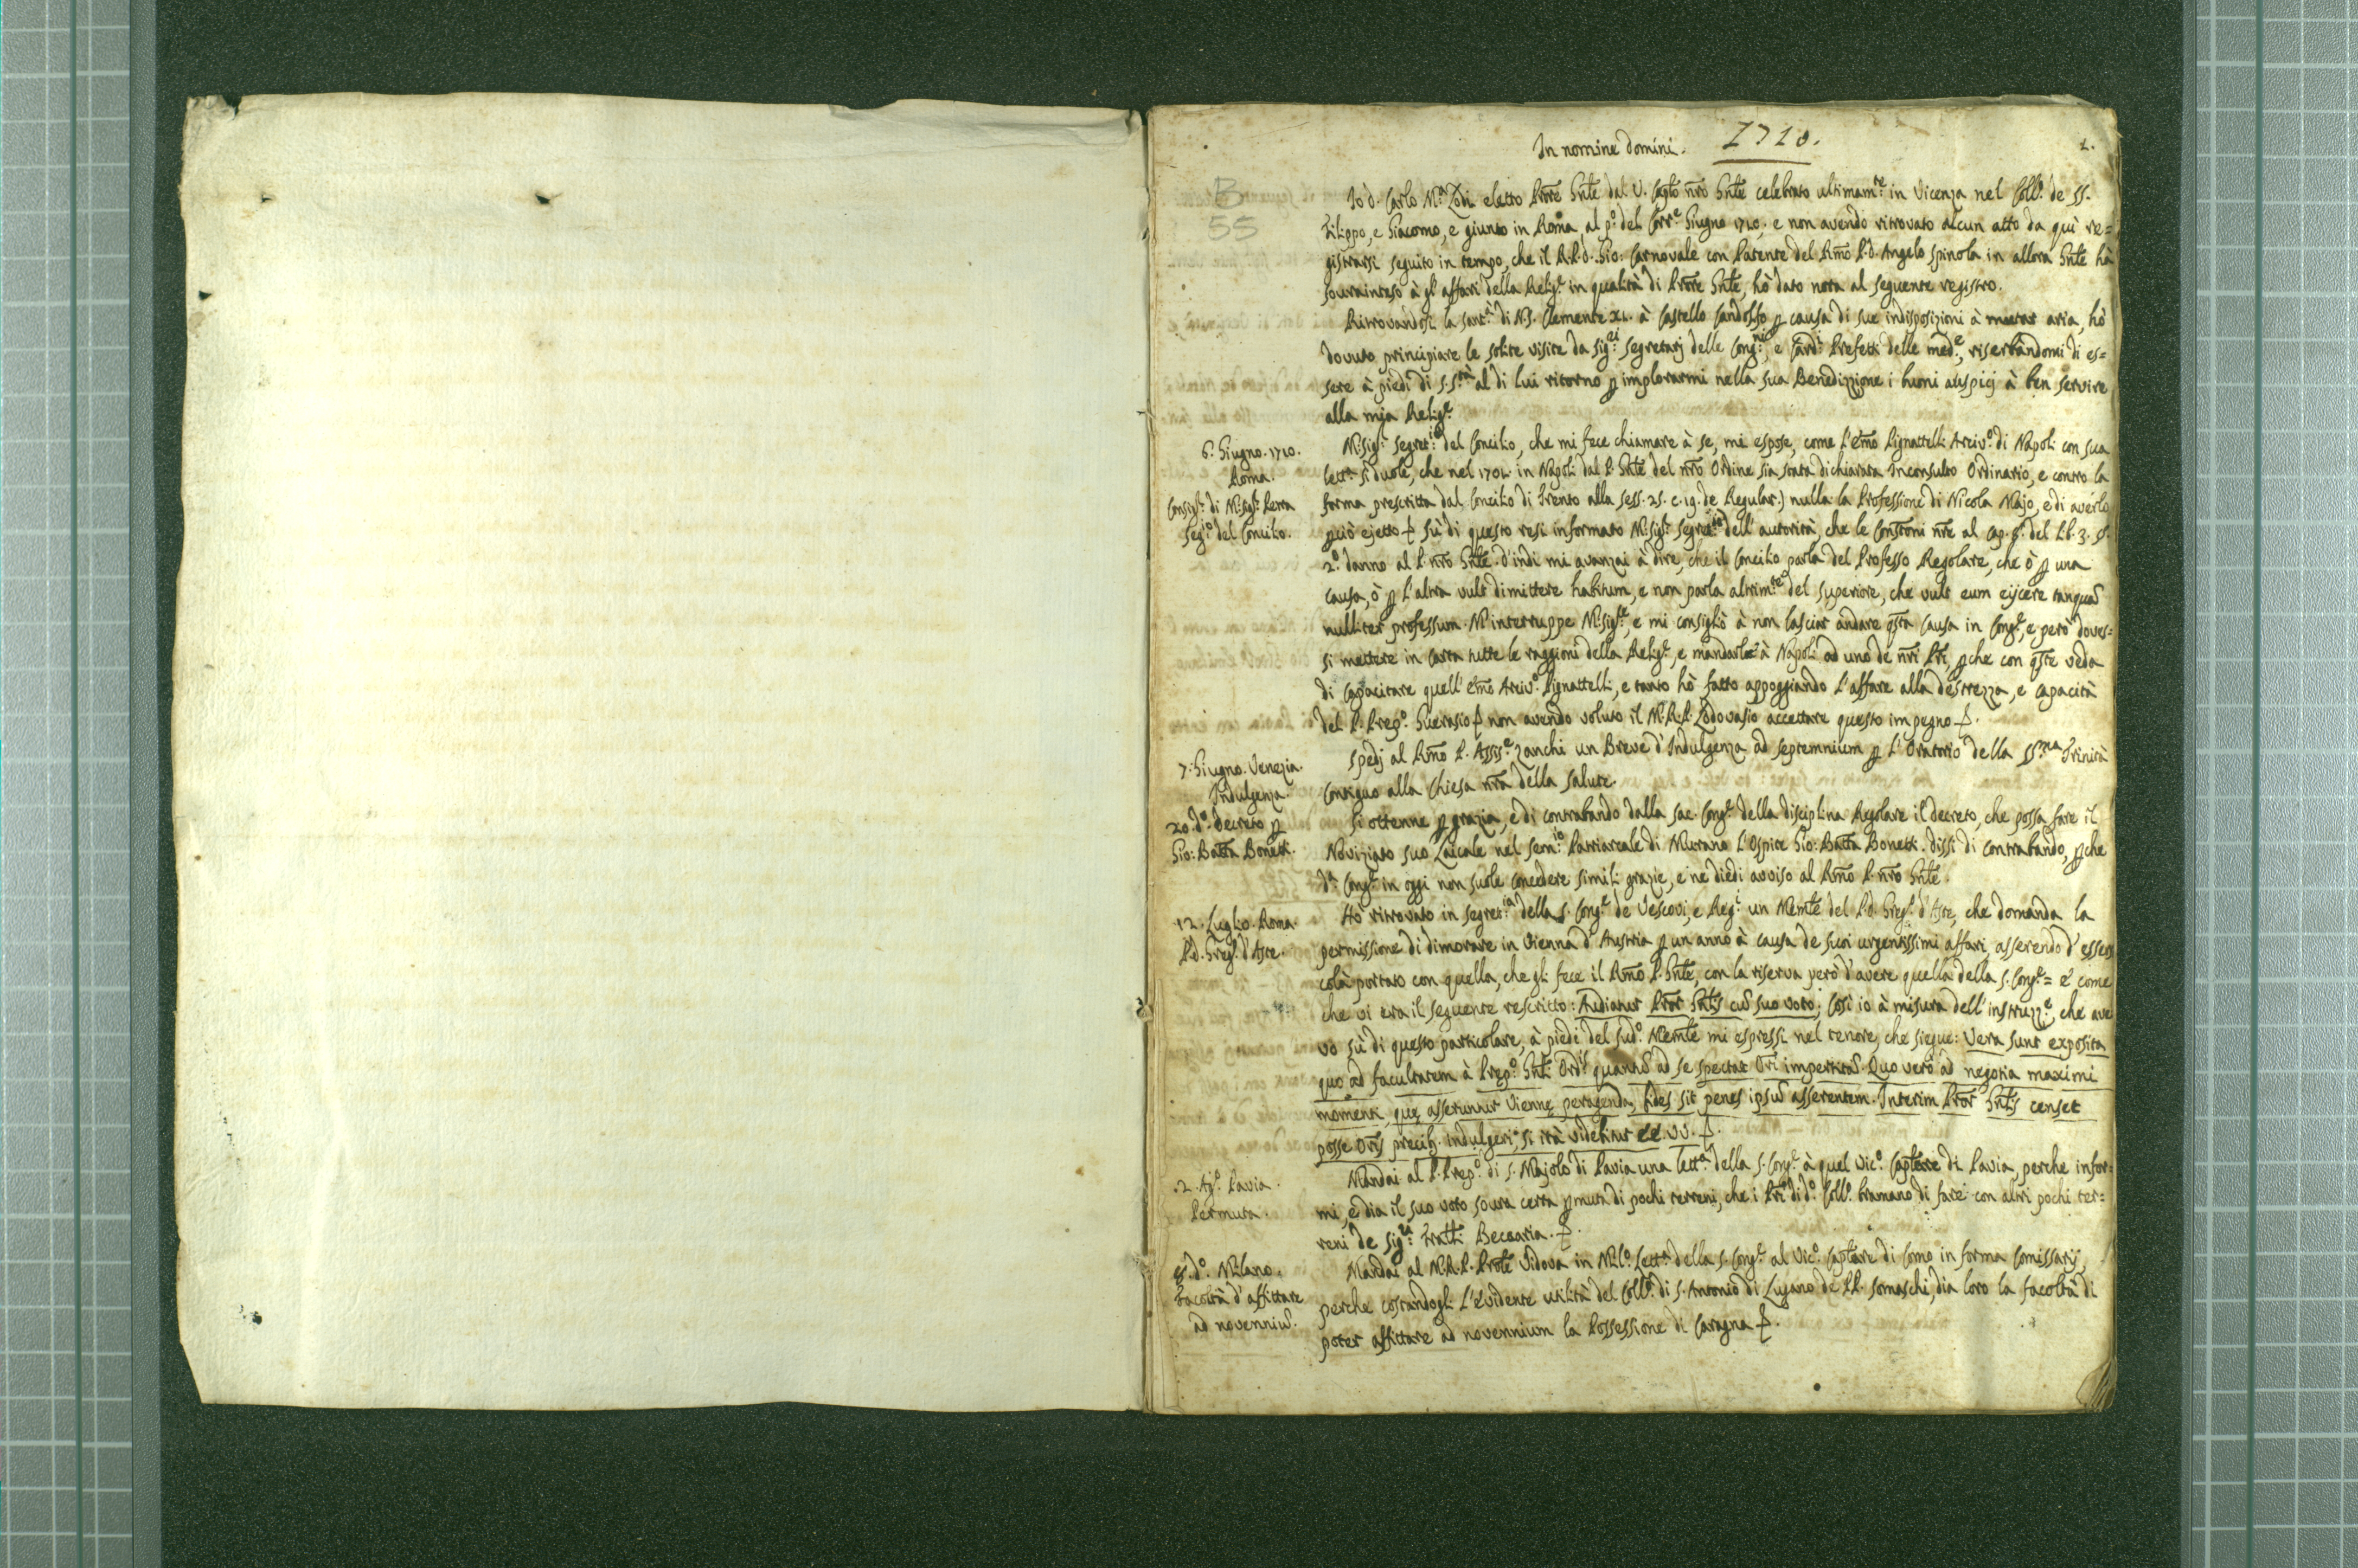 In nomine Domini. 1710. 1.
B
55
Io d. Carlo M.ª Lodi eletto Prõre Gñle dal V. Capto nrõ Gñle celebrato ultimam.te in Vicenza nel Coll.º de SS.
Filippo, e Giacomo, e giunto in Roma al p.º del Corr.e Giugno 1710. e non avendo ritrovato alcun atto da quì re=
gistrarsi seguito in tempo, che il R.P.D. Gio: Carnovale con Patente del Rmõ P.D. Angelo Spinola in allora Gñle hà
sourainteso à gl'affari della Relig.e in qualità di Prõre Gñle, hò dato nota al seguente registro.
Ritrovandosi la sant.à di N.S. Clemente XI. à Castello Gandolfo ꝑ causa di sue indisposizioni à mutar aria, hò
dovuto principiare le solite visite da Sig.ri Segretarj delle Cong.ni, e Card.i Prefetti delle med.e, riserbandomi di es=
sere à piedi di S. S.tà al di lui ritorno ꝑ implorarmi nella sua Benedizzione i buoni auspicj à ben servire
alla mia Relig.e
6. Giugno. 1710.
Roma.
Consigl.º di M.sig.r Petra
Seg.º del Concilio.
M.sig.r Segret.io del Concilio, che mi fece chiamare à se, mi espose, come l'Emõ Pignattelli Arciv.º di Napoli con sua
lett.ª si duole, che nel 1702. in Napoli dal P. Gñle del nrõ Ordine sia stata dichiarata Inconsulto Ordinario, e contro la
forma prescritta dal Concilio di Trento alla sess. 25. c. 19. de Regular.) nulla la Professione di Nicola Majo, e di averlo
ꝑciò ejetto. Sù di questo resi informato M.sig.r Segret.io dell'autorità, che le Constoni nrẽ al Cap. 8. del Lib. 3. §.
2.º danno al P. nrõ Gñle. D'indi mi avanzai à dire, che il Concilio parla del Professo Regolare, che ò ꝑ una
causa, ò ꝑ l'altra vult dimittere habitum, e non parla altrim.te del Superiore, che vult eum eijcere tanquã
nulliter professum. M'interruppe M.sig.re, e mi consigliò à non lasciar andare qsta Causa in Cong.e, e però doves=
si mettere in carta tutte le raggioni della Relig.e, e mandarle à Napoli ad uno de nrĩ Prĩ, ꝑche con qste veda
di capacitare quell'Emõ Arciv.º Pignattelli, e tanto hò fatto appoggiando l'affare alla destrezza, e capacità
del P. Prep.º Guerasio non avendo voluto il M.R.P. Lodovasio accettare questo impegno.
7. Giugno. Venezia.
Indulgenza
Spedj al Rmõ P. Assis.e Zanchi un Breve d'Indulgenza ad septennium ꝑ l'Oratorio della SS.ma Trinità
Contiguo alla Chiesa nrã della Salute.
20. d.º. Decreto ꝑ
Gio: Batta Bonetti.
Si ottenne ꝑ grazia, e di contrabando dalla sac. Cong.e della disciplina Regolare il decreto, che possa fare il
Noviziato suo Laicale nel Sem.io Patriarcale di Murano l'Ospite Gio: Batta Bonetti. Dissi di contrabando, ꝑche
d.ª Cong.e in oggi non suole concedere simili grazie, e ne diedi avviso al Rmõ P. nrõ Gñle.
12. Luglio. Roma.
P.D. Greg.º d'Aste.
Hò ritrovato in Segret.ia della S. Cong.e de Vescovi, e Reg.i un Memle del P.D. Greg.º d'Aste, che domanda la
permissione di dimorare in Vienna d'Austria ꝑ un anno à causa de suoi urgentissimi affari, asserendo d'essersi
colà portato con quella, che gli fece il Rmõ P. Gñle, con la riserva però d'avere quella della S. Cong.e= e come
che vi era il seguente rescritto: Audiatur Prõr Gñlis cũ suo voto; Così io à misura dell'instruzz.e, che ave
vo sù di questo particolare, à piedi del sud.º Memle mi espressi nel tenore, che siegue: Vera sunt exposita
quo ad facultatem à Prep.º Gñli Ord.is quantũ ad se spectat Orĩ impertitã. Quo verò ad negotia maximi
momenti, quę asseruntur Viennę peragenda, fides sit penes ipsũ asserentem. Interim Prõr Gñlis censet
posse Orĩs precib. indulgeri, si ità videbitur EE. VV.
.2. Ag.º Pavia.
Permuta.
Mandai al P. Prep.º di S. Majolo di Pavia una lett.ª della S. Cong.e à quel Vic.º Captlare di Pavia, perche infor=
mi, e dia il suo voto soura certa ꝑmuta di pochi terreni, che i Prĩ di d.º Coll.º bramano di fare con altri pochi ter=
reni de Sig.ri Fratlli Beccaria.
8. d.º. Milano.
Facoltà d'affittare
ad novenniũ.
Mandai al M.R.P. Prõle Vidova in Mil.º Lett.ª della S. Cong.e al Vic.º Captlare di Como in forma Comissarij,
perche costandogli l'evidente utilità del Coll.º di S. Antonio di Lugano de PP. Somaschi, dia loro la facoltà di
poter affittare ad novennium la Possessione di Caragna.